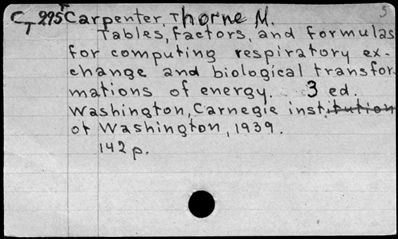 CT 295 Carpenter, Thorne M. 5
Tables, factors, and formulas
for computing respiratory ex-
change and biological transfor-
mations of energy. 3 ed.
Washington, Carnegie institution
of Washington, 1939.
142 p.